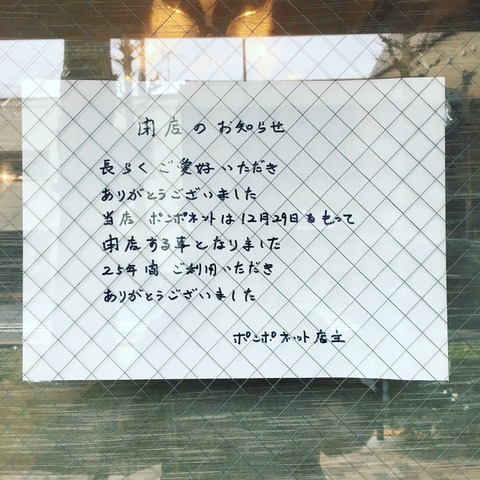 閉店のお知らせ
長らくご愛好いただき
ありがとうございました
当店 ポンポネットは12月29日をもって
閉店する事となりました
25年間 ご利用いただき
ありがとうございました
ポンポネット店主